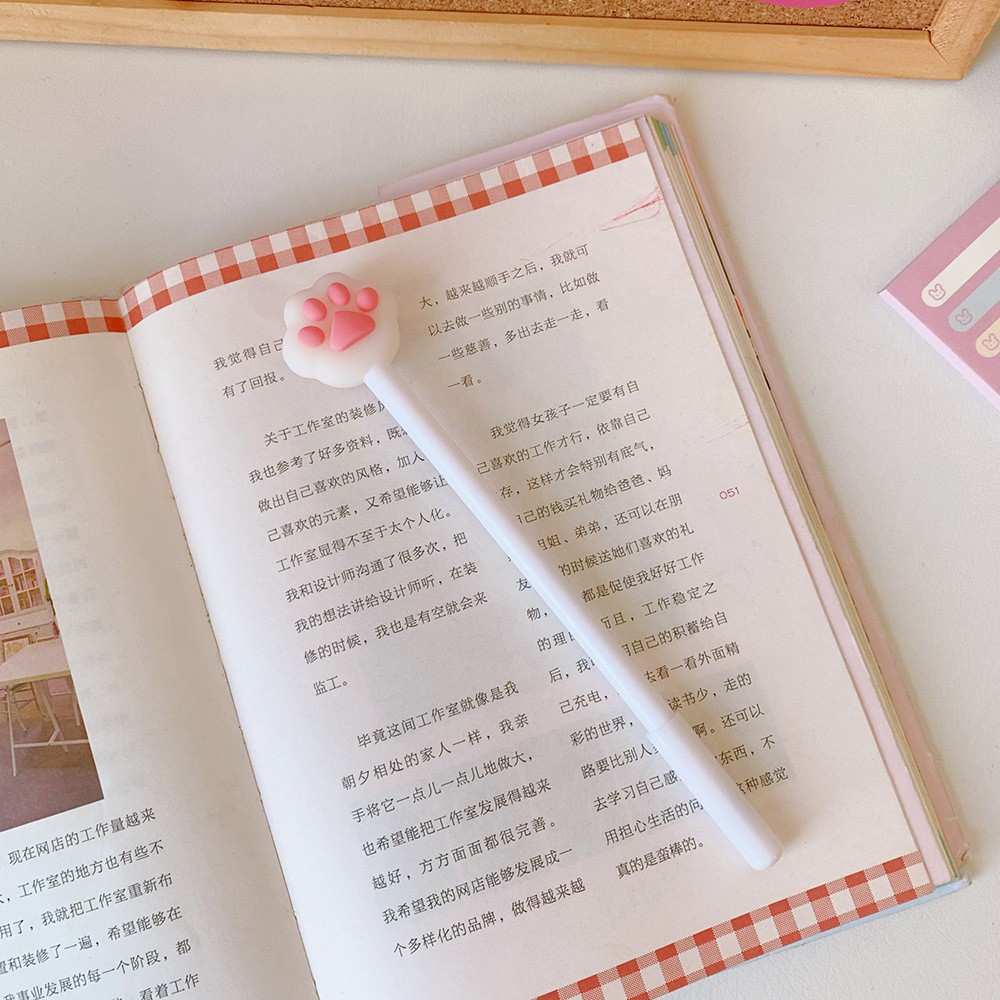 现在网店的工作量越来
，工作室的地方也有些不
用了，我就把工作室重新布
置和装修了一遍，希望能够在
我事业发展的每一个阶段，都
看着工作
我觉得自己
有了回报。
关于工作室的装修
我也参考了好多资料，既
做出自己喜欢的风格，加入
己喜欢的元素，又希望能够让
工作室显得不至于太个人化。
我和设计师沟通了很多次，把
我的想法讲给设计师听，在装
修的时候，我也是有空就会来
监工。
毕竟这间工作室就像是我
朝夕相处的家人一样，我亲
手将它一点儿一点儿地做大，
也希望能把工作室发展得越来
越好，方方面面都很完善。
我希望我的网店能够发展成一
个多样化的品牌，做得越来越
大，越来越顺手之后，我就可
以去做一些别的事情，比如做
一些慈善，多出去走一走，看
一看。
我觉得女孩子一定要有自
己喜欢的工作才行，依靠自己
存，这样才会特别有底气，
己的钱买礼物给爸爸、妈
姐、弟弟，还可以在朋
友 的时候送她们喜欢的礼
物， 都是促使我好好工作
的理由 而且，工作稳定之
后，我 自己的积蓄给自
己充电， 去看一看外面精
彩的世界， 读书少，走的
路要比别人 啊。还可以
去学习自己感 东西，不
用担心生活的问 这种感觉
真的是蛮棒的。
051